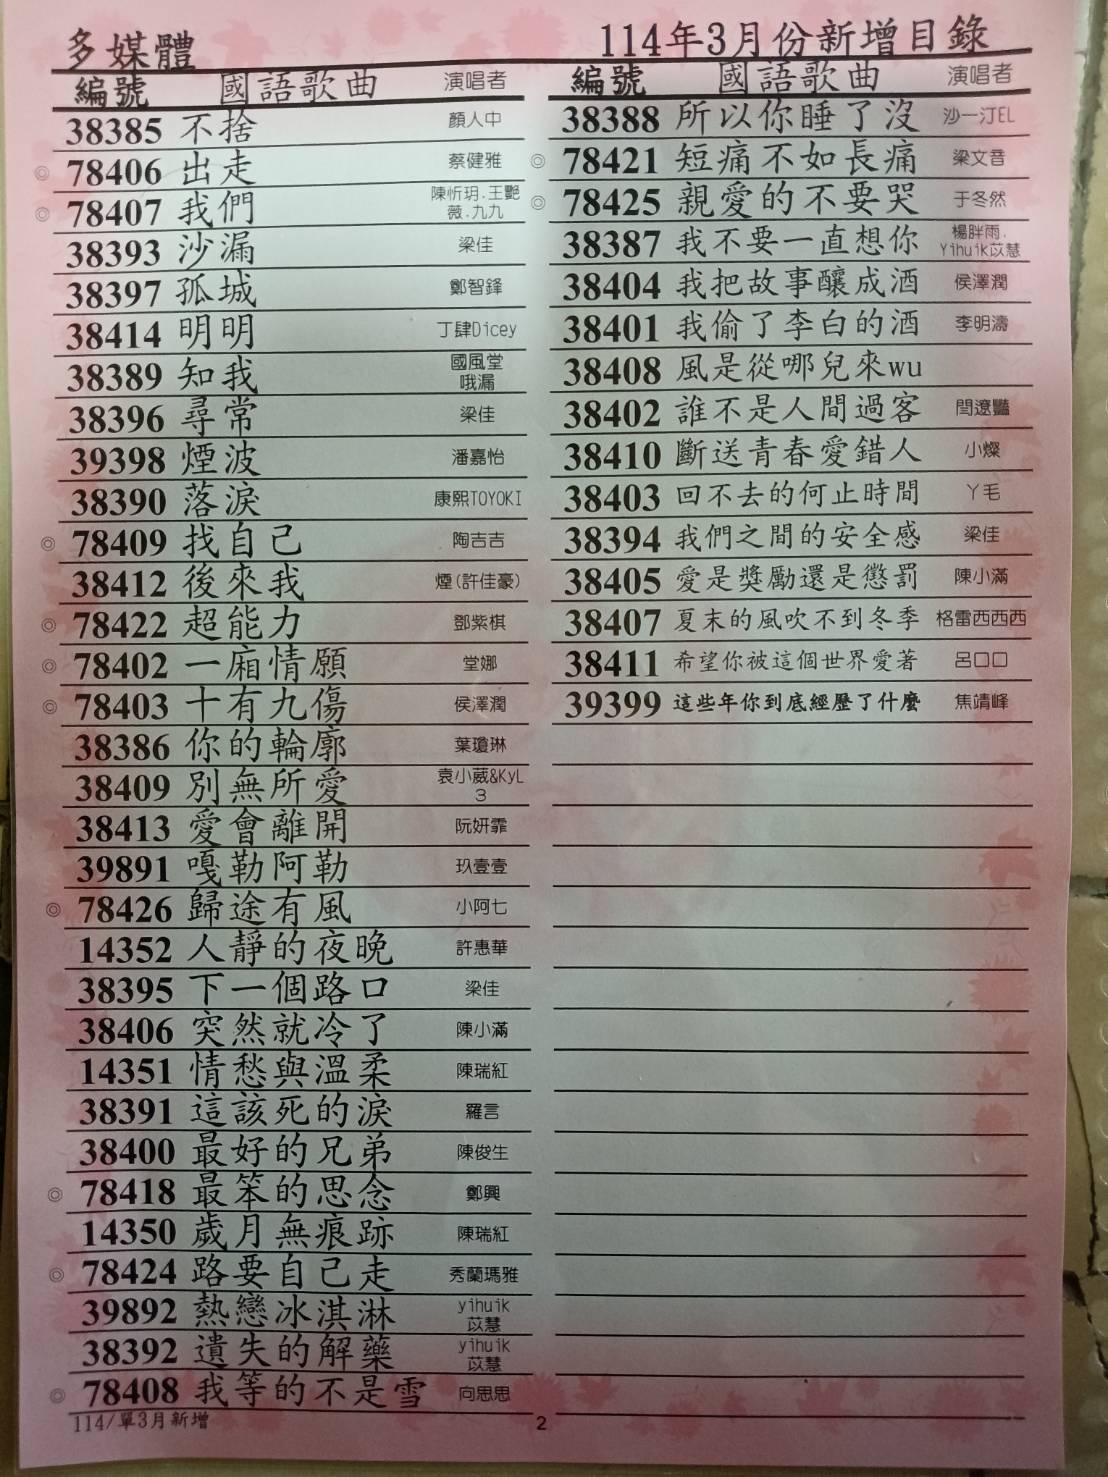 多媒體
114年3月份新增目錄
編號 國語歌曲 演唱者
38385 不捨 顏人中
◎ 78406 出走 蔡健雅
◎ 78407 我們 陳忻玥.王艷薇.九九
38393 沙漏 梁佳
38397 孤城 鄭智鋒
38414 明明 丁肆Dicey
38389 知我 國風堂 哦漏
38396 尋常 梁佳
39398 煙波 潘嘉怡
38390 落淚 康熙TOYOKI
◎ 78409 找自己 陶吉吉
38412 後來我 煙(許佳豪)
◎ 78422 超能力 鄧紫棋
◎ 78402 一廂情願 堂娜
◎ 78403 十有九傷 侯澤潤
38386 你的輪廓 葉瓊琳
38409 別無所愛 袁小葳&KyL3
38413 愛會離開 阮妍霏
39891 嘎勒阿勒 玖壹壹
◎ 78426 歸途有風 小阿七
14352 人靜的夜晚 許惠華
38395 下一個路口 梁佳
38406 突然就冷了 陳小滿
14351 情愁與溫柔 陳瑞紅
38391 這該死的淚 羅言
38400 最好的兄弟 陳俊生
◎ 78418 最笨的思念 鄭興
14350 歲月無痕跡 陳瑞紅
◎ 78424 路要自己走 秀蘭瑪雅
39892 熱戀冰淇淋 yihuik 苡慧
38392 遺失的解藥 yihuik 苡慧
◎ 78408 我等的不是雪 向思思
編號 國語歌曲 演唱者
38388 所以你睡了沒 沙一汀EL
◎ 78421 短痛不如長痛 梁文音
◎ 78425 親愛的不要哭 于冬然
38387 我不要一直想你 楊胖雨.Yihuik苡慧
38404 我把故事釀成酒 侯澤潤
38401 我偷了李白的酒 李明濤
38408 風是從哪兒來wu
38402 誰不是人間過客 閆遼豔
38410 斷送青春愛錯人 小燦
38403 回不去的何止時間 丫毛
38394 我們之間的安全感 梁佳
38405 愛是獎勵還是懲罰 陳小滿
38407 夏末的風吹不到冬季 格雷西西西
38411 希望你被這個世界愛著 呂口口
39399 這些年你到底經歷了什麼 焦靖峰
114/單3月新增
2